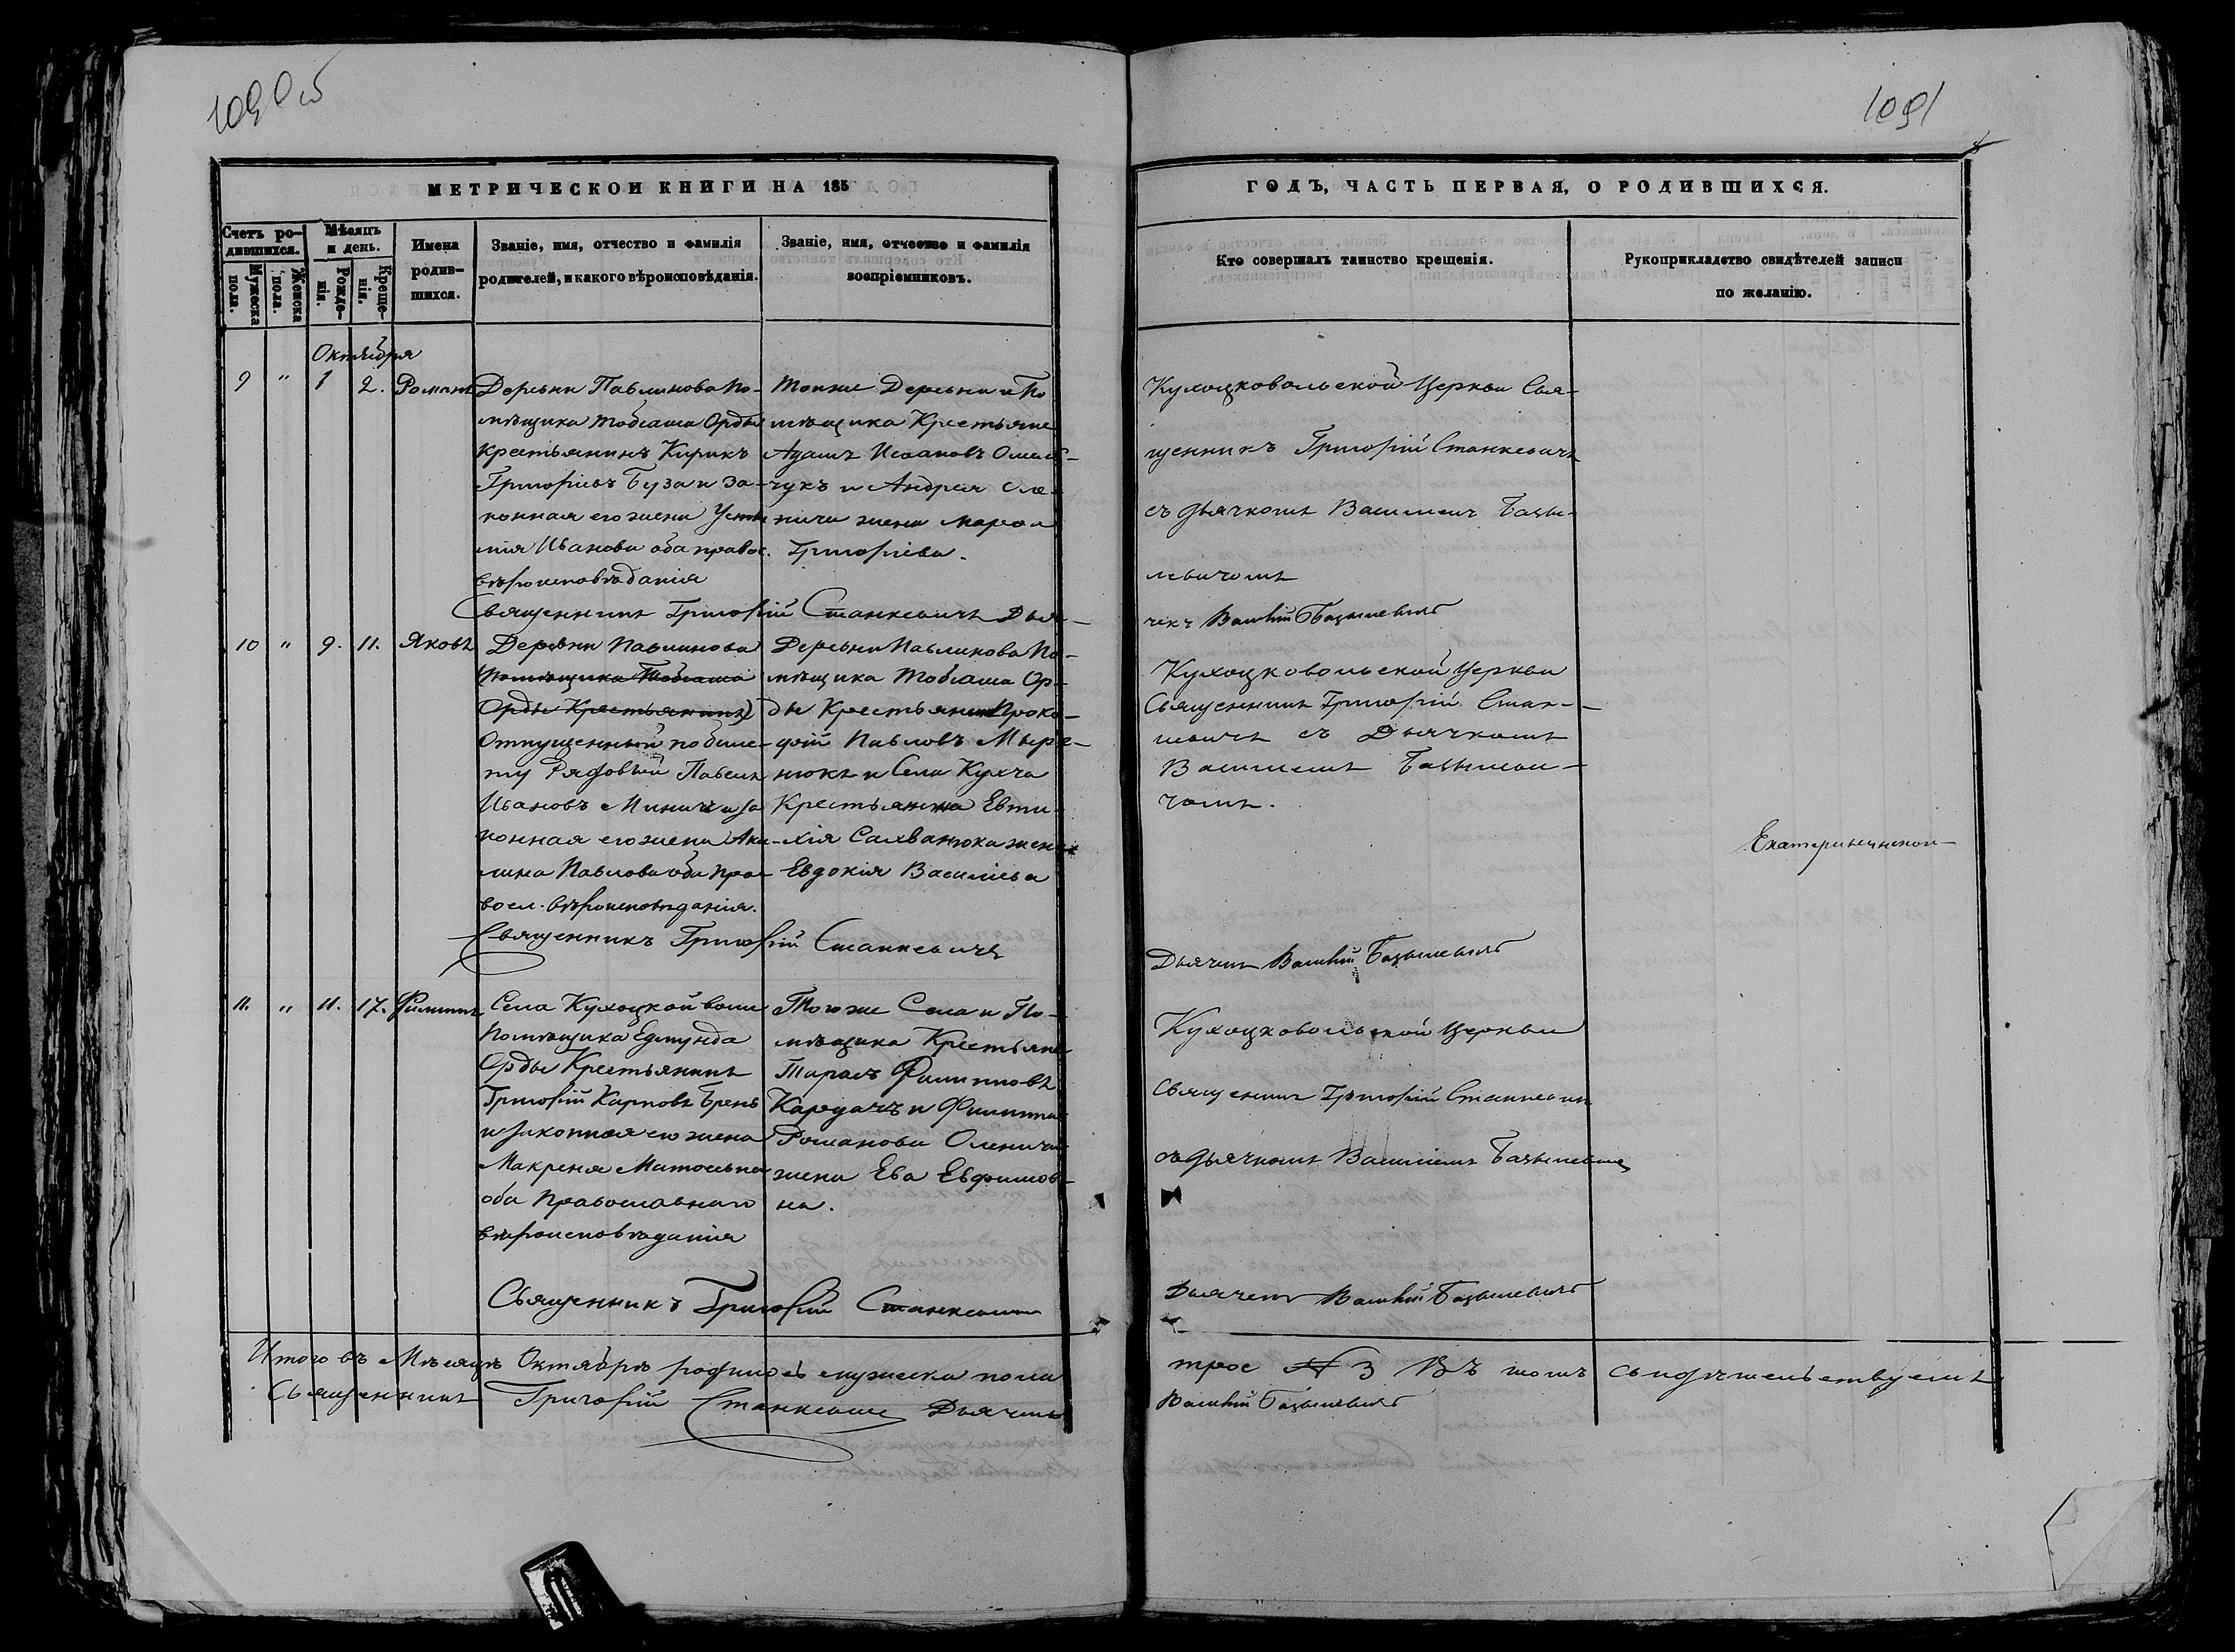 1090 об
1091
МЕТРИЧЕСКОЙ КНИГИ НА 185
ГОДЪ, ЧАСТЬ ПЕРВАЯ, О РОДИВШИХСЯ.
Счетъ ро-
дившихся.
Мужеска
пола.
Женска
пола.
Мѣсяцъ
и день.
Рожде-
нія.
Креще-
нія.
Имена
родив-
шихся.
Званіе, имя, отчество и фамилія
родителей, и какого вѣроисповѣданія.
Званіе, имя, отчество и фамилія
воспріемниковъ.
Кто совершалъ таинство крещенія.
Рукоприкладство свидѣтелей записи
по желанію.
Октября
9 " 1 2. Романъ
Деревни Павлинова По-
мѣщика Тобіаша Орды
Крестьянинъ Кирикъ
Григорьевъ Буза и за-
конная его жена Усти
нія Иванова оба правос.
вѣроисповѣданія
Тойже Деревни и По
мѣщика Крестьяне
Адамъ Исааковъ
чукъ и Андрея
жена
Григоріева.
Кухоцковольской Церкви Свя-
щенникъ Григорій Станкевичъ
съ дьячкомъ Василіемъ Базы-
левичомъ
Священникъ Григорій Станкевичъ Дья-
чекъ Василій Базылевичъ
10 " 9. 11. Яковъ
Деревни Павлинова
(Помѣщика Тобіаша
Орды Крестьянинъ)
Отпущенный по биле-
ту Рядовый Павелъ
Ивановъ Миничъ и за
конная его жена Аки-
лина Павлова оба Пра-
восл. вѣроисповѣданія.
Деревни Павлинова По-
мѣщика Тобіаша Ор-
ды Крестьянинъ Проко-
фій Павловъ
нюкъ и Села Кухча
Крестьянина Евти-
хія Сахванюка жена
Евдокія Василіева
Кухоцковольской Церкви
Священникъ Григорій Стан-
кевичъ съ Дьячкомъ
Василіемъ Базылеви-
чомъ.
Екатерининской
Священникъ Григорій Станкевичъ
Дьячекъ Василій Базылевичъ
11. " 11. 17. Филиппъ
Села Кухоцкой воли
Помѣщика Едмунда
Орды Крестьянинъ
Григорій Карповъ Брень
и законная его жена
Макреня Матѳевна
оба Православнаго
вѣроисповѣданія
Тогоже Села и По-
мѣщика Крестьяне
Тарасъ Филипповъ
Кардачъ и Филиппа
Романова Оленича
жена Ева Евфимов-
на.
Кухоцковольской Церкви
Священникъ Григорій Станкевичъ
съ дьячкомъ Василіемъ Базылевичемъ
Священникъ Григорій Станкевичъ
Дьячекъ Василій Базылевичъ
Итого въ Мѣсяцѣ Октябрѣ родилось мужеска пола
трое № 3 Въ томъ свидѣтельствуемъ
Священникъ Григорій Станкевичъ Дьячекъ
Василій Базылевичъ